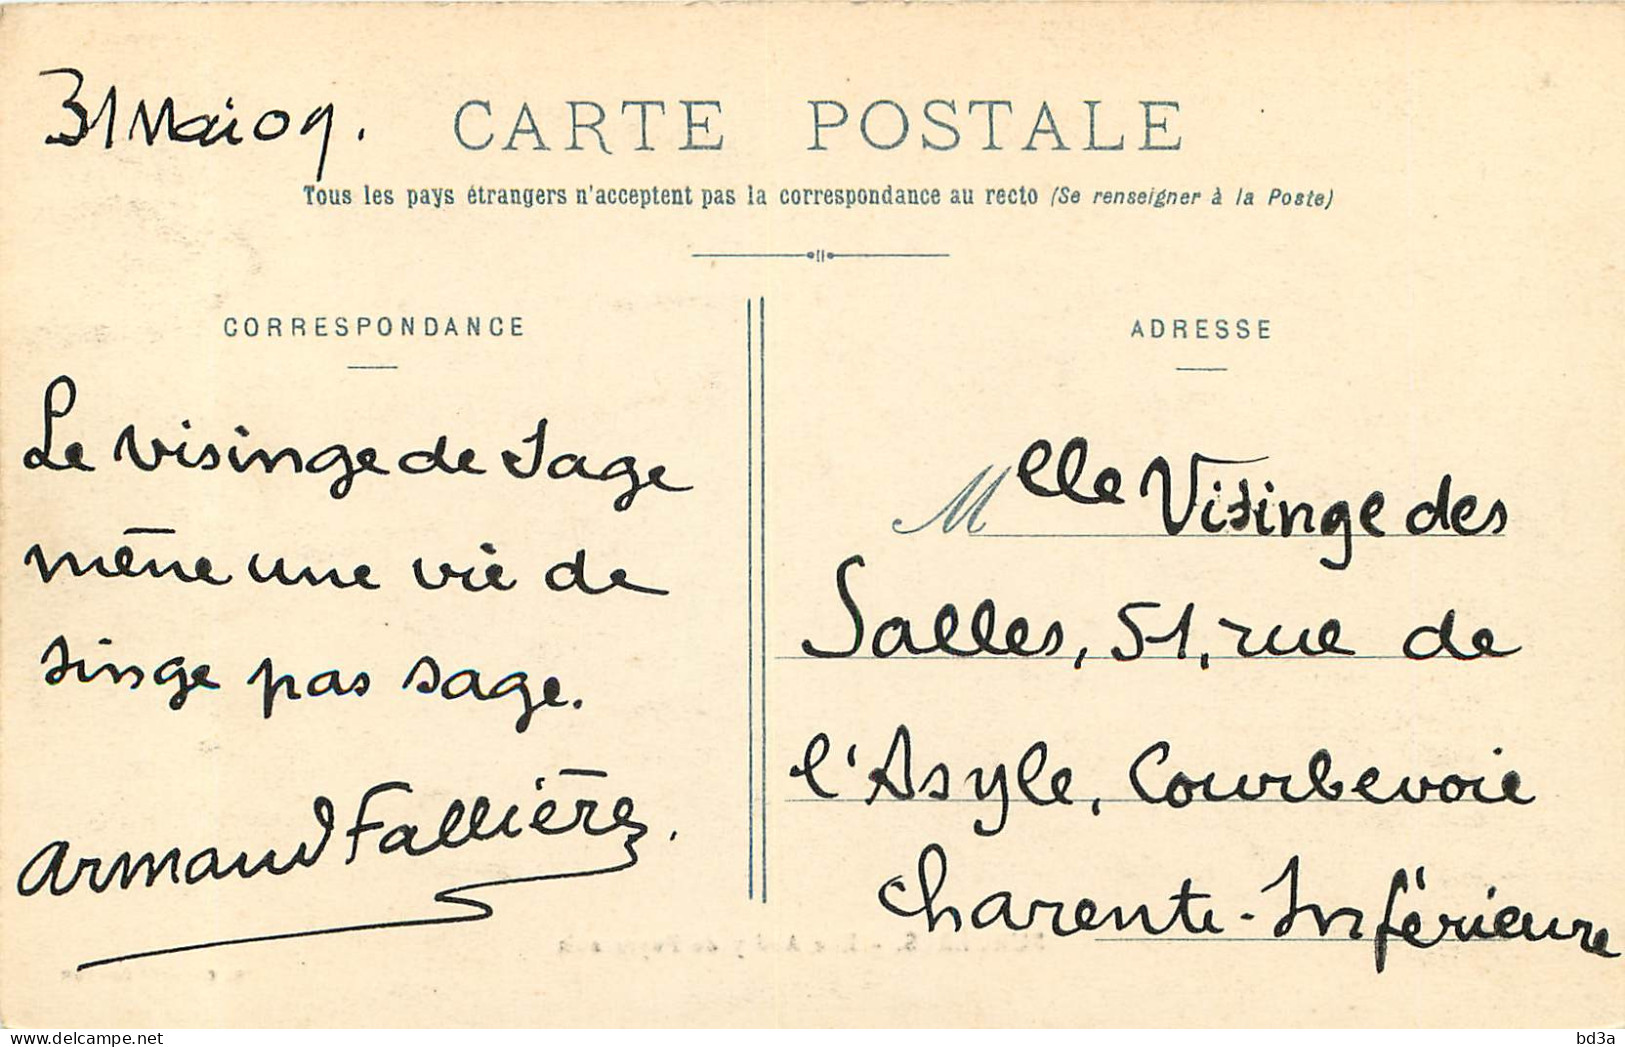 31 Mai 09.
CARTE POSTALE
Tous les pays étrangers n'acceptent pas la correspondance au recto (Se renseigner à la Poste)
CORRESPONDANCE
Le visinge de Sage
mène une vie de
singe pas sage.
Armand Fallières.
ADRESSE
Melle Visinge des
Salles, 51, rue de
l'Asyle, Courbevoie
Charente-Inférieure
bd3a